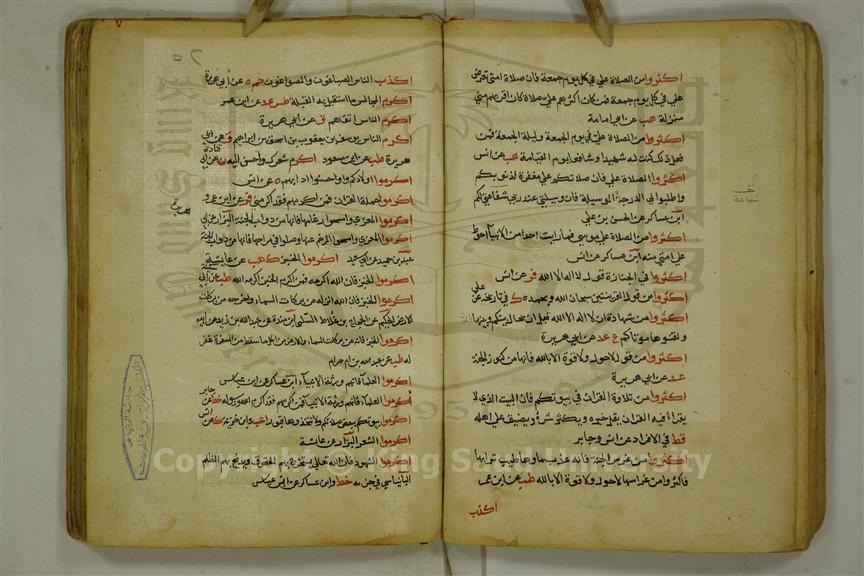 اكثروا من الصلاة علي في كل يوم جمعة فان صلاة امتي تعرض
علي في كل يوم جمعة فمن كان اكثرهم علي صلاة كان اقربهم مني
منزلة هب عن ابي امامة
اكثروا من الصلاة علي في يوم الجمعة وليلة الجمعة فمن
فعل ذلك كنت له شهيدا وشافعا يوم القيامة هب عن انس
اكثروا الصلاة علي فان صلاتكم علي مغفرة لذنوبكم
واطلبوا لي الدرجة الوسيلة فان وسيلتي عند ربي شفاعتي لكم
ابن عساكر عن الحسن بن علي
اكثروا من الصلاة علي موسي فما رايت احدا من الانبيا احوط
علي امتي منه ابن عساكر عن انس
اكثروا في الجنازة قول لا اله الا الله فر عن انس
اكثروا من قول القرينتين سبحان الله وبحمده ك في تاريخه عن علي
اكثروا من شهادة ان لا اله الا الله قبل ان يحال بينكم وبينها
ولقنوها موتاكم ع عد عن ابي هريرة
اكثروا من قول لاحول ولا قوة الا بالله فانها من كنوز الجنة
عد عن ابي هريرة
اكثروا من تلاوة القران في بيوتكم فان البيت الذي لا
يقرا فيه القران يقل خيره ويكثر شره ويضيق علي اهله
قط في الافراد عن انس وجابر
اكثروا من غرس الجنة فانه عذب ماوها طيب ترابها
فاكثروا من غراسها لاحول ولا قوة الا بالله طب عن ابن عمر
اكذب
اكذب الناس الصباغون والصواغون حم ه عن ابي هريرة
اكرم المجالس ما استقبل به القبلة طس عد عن ابن عمر
اكرم الناس اتقاهم ق عن ابي هريرة
اكرم الناس يوسف بن يعقوب بن اسحق بن ابراهيم ق عن ابي
هريرة طب عن ابن مسعود اكرم شعرك واحسن اليه ن عن ابي قتادة
اكرموا اولادكم واحسنوا ادابهم ه عن انس
اكرموا حملة القران فمن اكرمهم فقد اكرمني فر عن ابن عمرو
اكرموا المعزي وامسحوا رغامها فانها من دواب الجنة البزار عن ابي
هريرة
اكرموا المعزي وامسحوا الرغم عنها وصلوا في مراحها فانها من دواب الجنة
عبد بن حميد عن ابي سعيد اكرموا الخبز ك هب عن عايشة
اكرموا الخبز فان الله اكرمه فمن اكرم الخبز اكرمه الله طب عن ابي
اكرموا الخبز فان الله انزله من بركات السماء واخرجه من بركات
الارض الحكيم عن الحجاج بن علاط السلمي ابن مندة عن عبد الله بن زيد عن ابيه
اكرموا الخبز فانه من بركات السماء والارض من اكل ما سقط من السفرة غفر
له طب عن عبد الله بن ام حرام
اكرموا العلماء فانهم ورثة الانبياء ابن عساكر عن ابن عباس
اكرموا العلماء فانهم ورثة الانبيا فمن اكرمهم فقد اكرم الله ورسوله خط عن جابر
اكرموا بيوتكم ببعض صلاتكم ولا تتخذوها قبورا عب وابن خزيمة ك عن انس
اكرموا الشعر البزار عن عايشة
اكرموا الشهود فان الله تعالي يستخرج بهم الحقوق ويدفع بهم الظلم
البانياسي في جزءه خط وابن عساكر عن ابن عباس
Copyright © King Saud University
1957